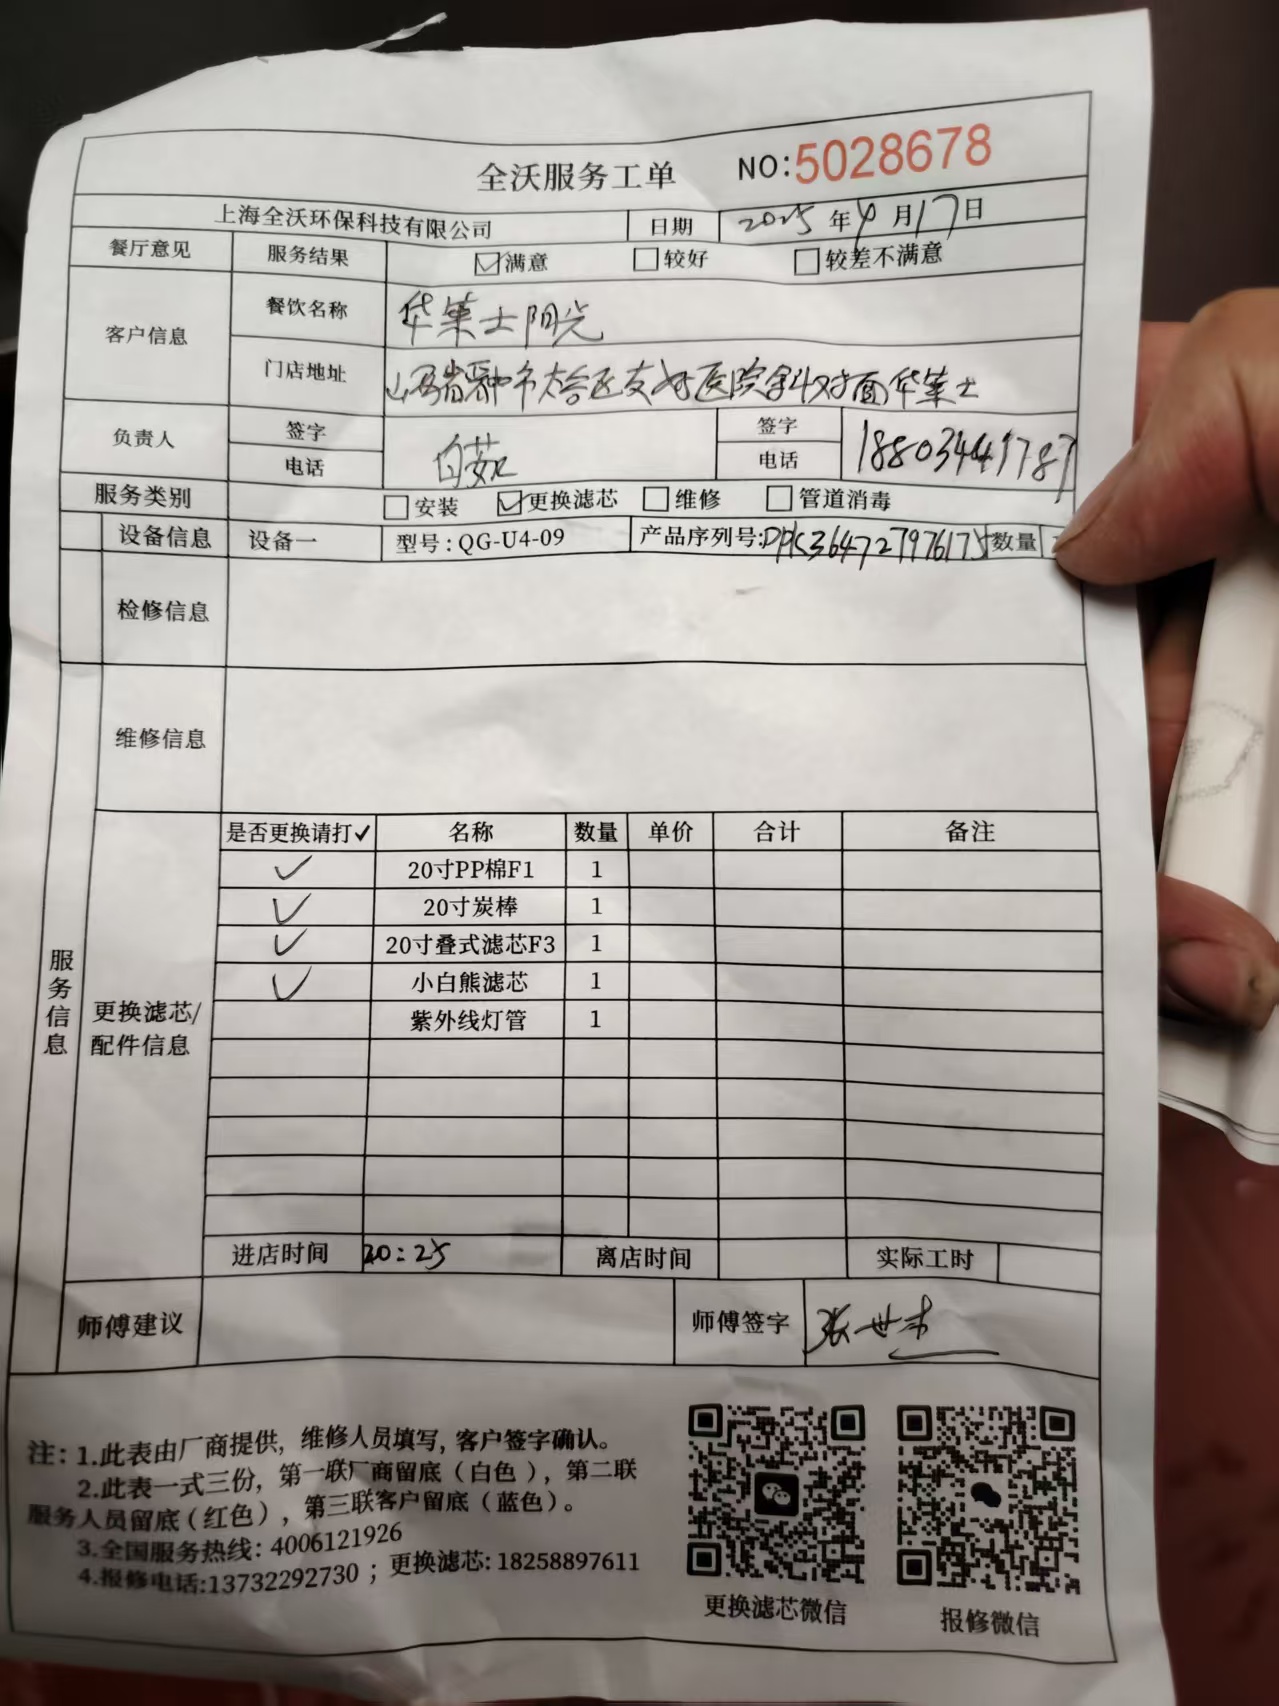 全沃服务工单 NO:5028678
上海全沃环保科技有限公司 日期 2025年4月17日
餐厅意见 服务结果 ☑满意 ☐较好 ☐较差不满意
客户信息 餐饮名称 华莱士阳光
门店地址 山西省晋中市太谷区友好医院斜对面华莱士
负责人 签字 白茹 签字
电话 电话 18803441787
服务类别 ☐安装 ☑更换滤芯 ☐维修 ☐管道消毒
设备信息 设备一 型号:QG-U4-09 产品序列号: 数量
检修信息
维修信息
服务信息
更换滤芯/配件信息
是否更换请打✓ 名称 数量 单价 合计 备注
✓ 20寸PP棉F1 1
✓ 20寸炭棒 1
✓ 20寸叠式滤芯F3 1
✓ 小白熊滤芯 1
紫外线灯管 1
进店时间 20:25 离店时间 实际工时
师傅建议 师傅签字 张世杰
注:1.此表由厂商提供,维修人员填写,客户签字确认。
2.此表一式三份,第一联厂商留底(白色),第二联
服务人员留底(红色),第三联客户留底(蓝色)。
3.全国服务热线:4006121926
4.报修电话:13732292730;更换滤芯:18258897611
更换滤芯微信 报修微信